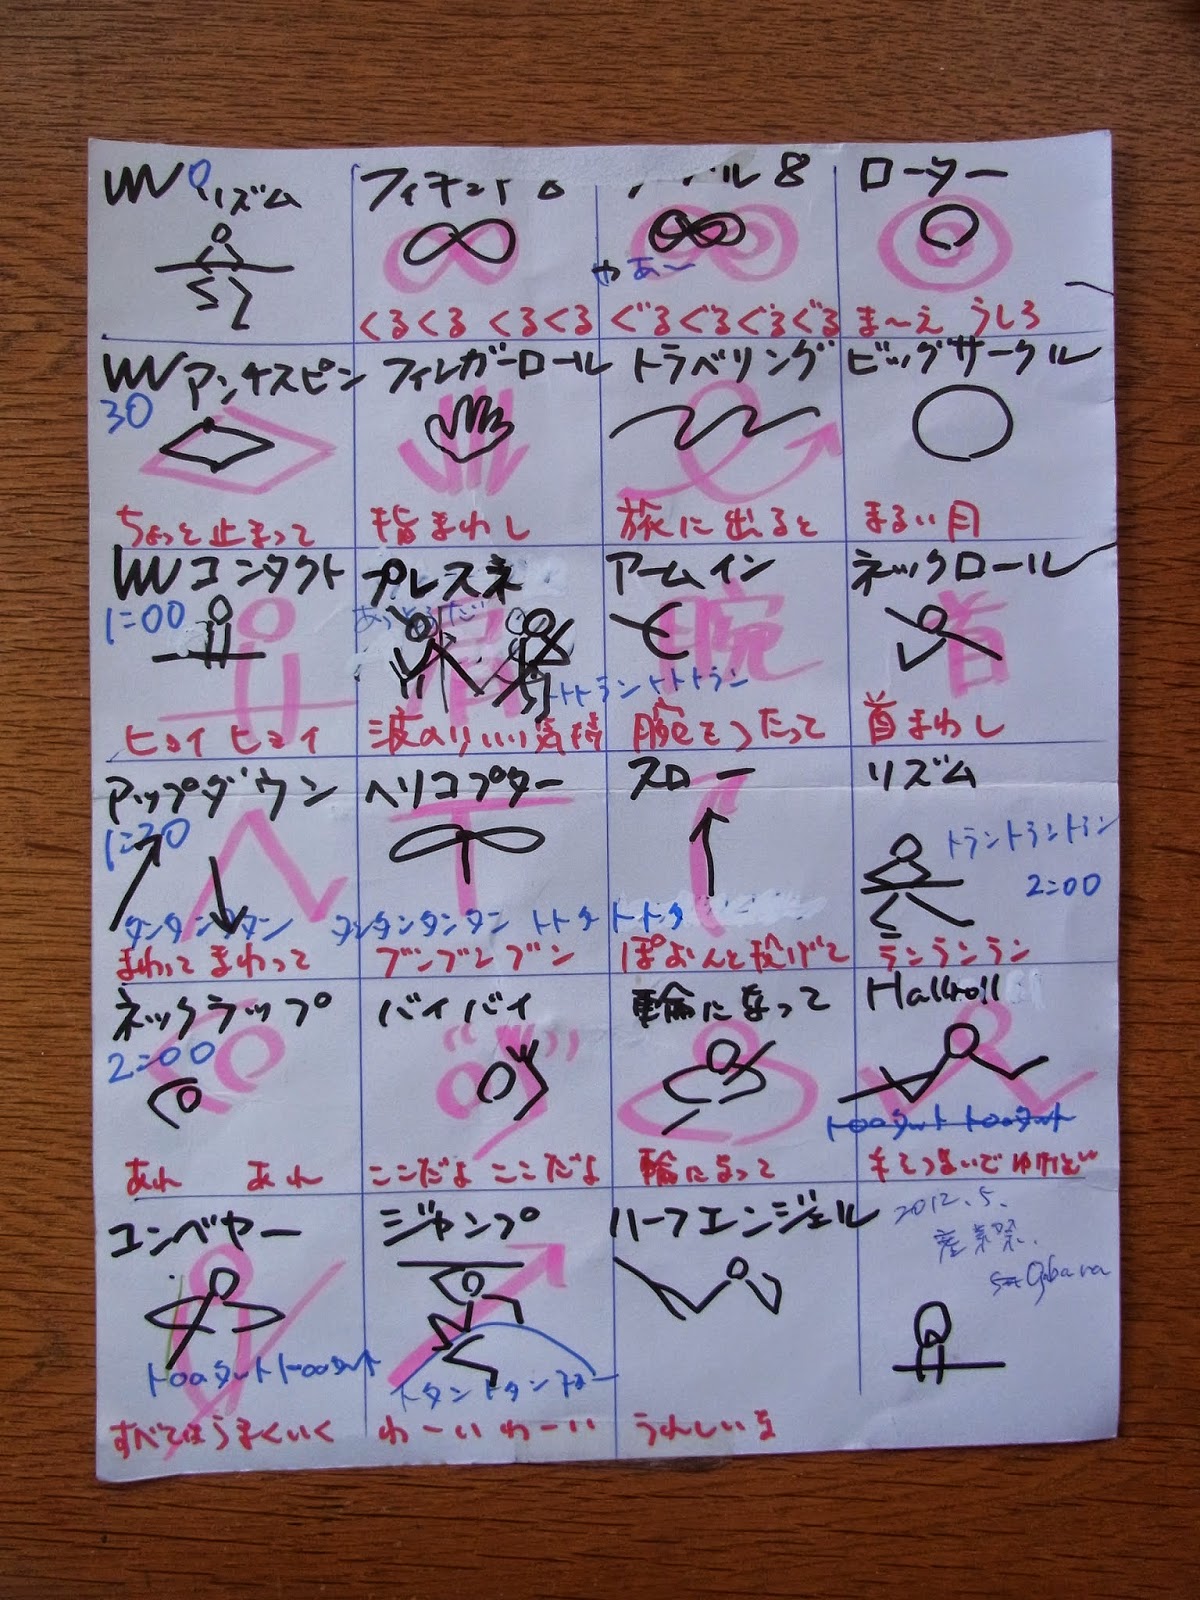 リズム
0
くるくる くるくる
8
やあ〜
ぐるぐるぐるぐる
ローター
ま〜え うしろ
アンチスピン
30
ちょっと止まって
フィンガーロール
指まわし
トラベリング
旅に出ると
ビッグサークル
まるい月
コンタクト
1:00
ヒョイ ヒョイ
プレスネ
肩
波のりいい気持
アームイン
腕
トトトラントトトラン
腕をつたって
ネックロール
首
首まわし
アップダウン
1:30
タンタンタタン
まわって まわって
ヘリコプター
タンタンタンタン トトタ トトタ
ブンブンブン
スロー
ぽおんと投げて
リズム
トラントラントラン
2:00
ランランラン
ネックラップ
2:00
あれ あれ
バイバイ
ここだよ ここだよ
輪になって
輪になって
Hallroll
手をつないでゆけば
コンベヤー
すべてはうまくいく
ジャンプ
トタントタン
わーい わーい
ハーフエンジェル
うれしいな
2012.5.
産業祭